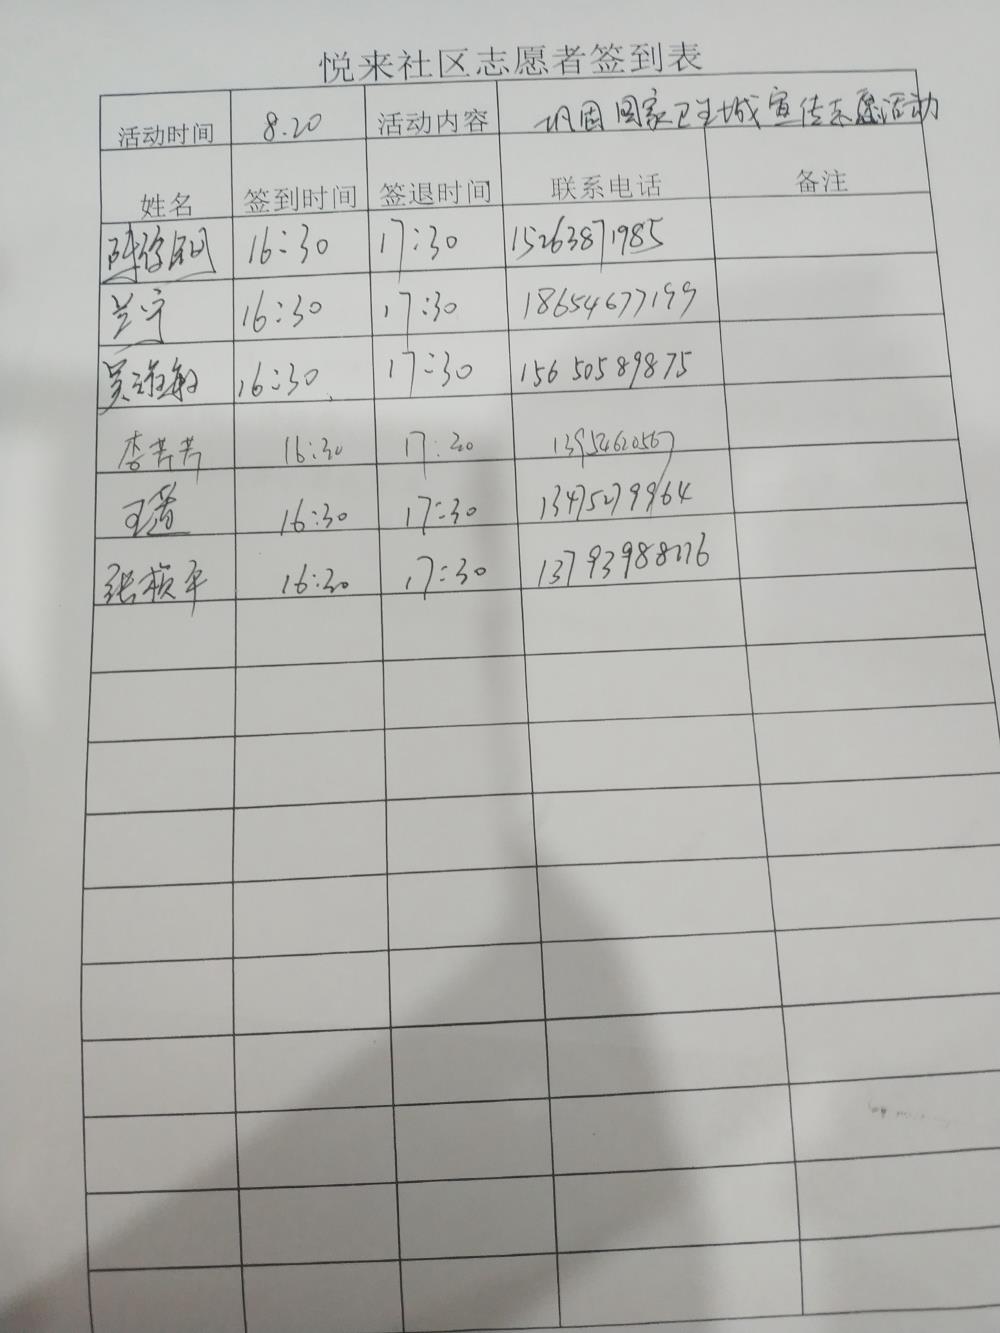 悦来社区志愿者签到表
活动时间 8.20 活动内容 巩固国家卫生城宣传志愿活动
姓名 签到时间 签退时间 联系电话 备注
16:30 17:30 15263871985
兰宁 16:30 17:30 18654677199
吴雅敏 16:30 17:30 15650589875
李芳芳 16:30 17:30 13954620567
王 16:30 17:30 13475279964
张桢平 16:30 17:30